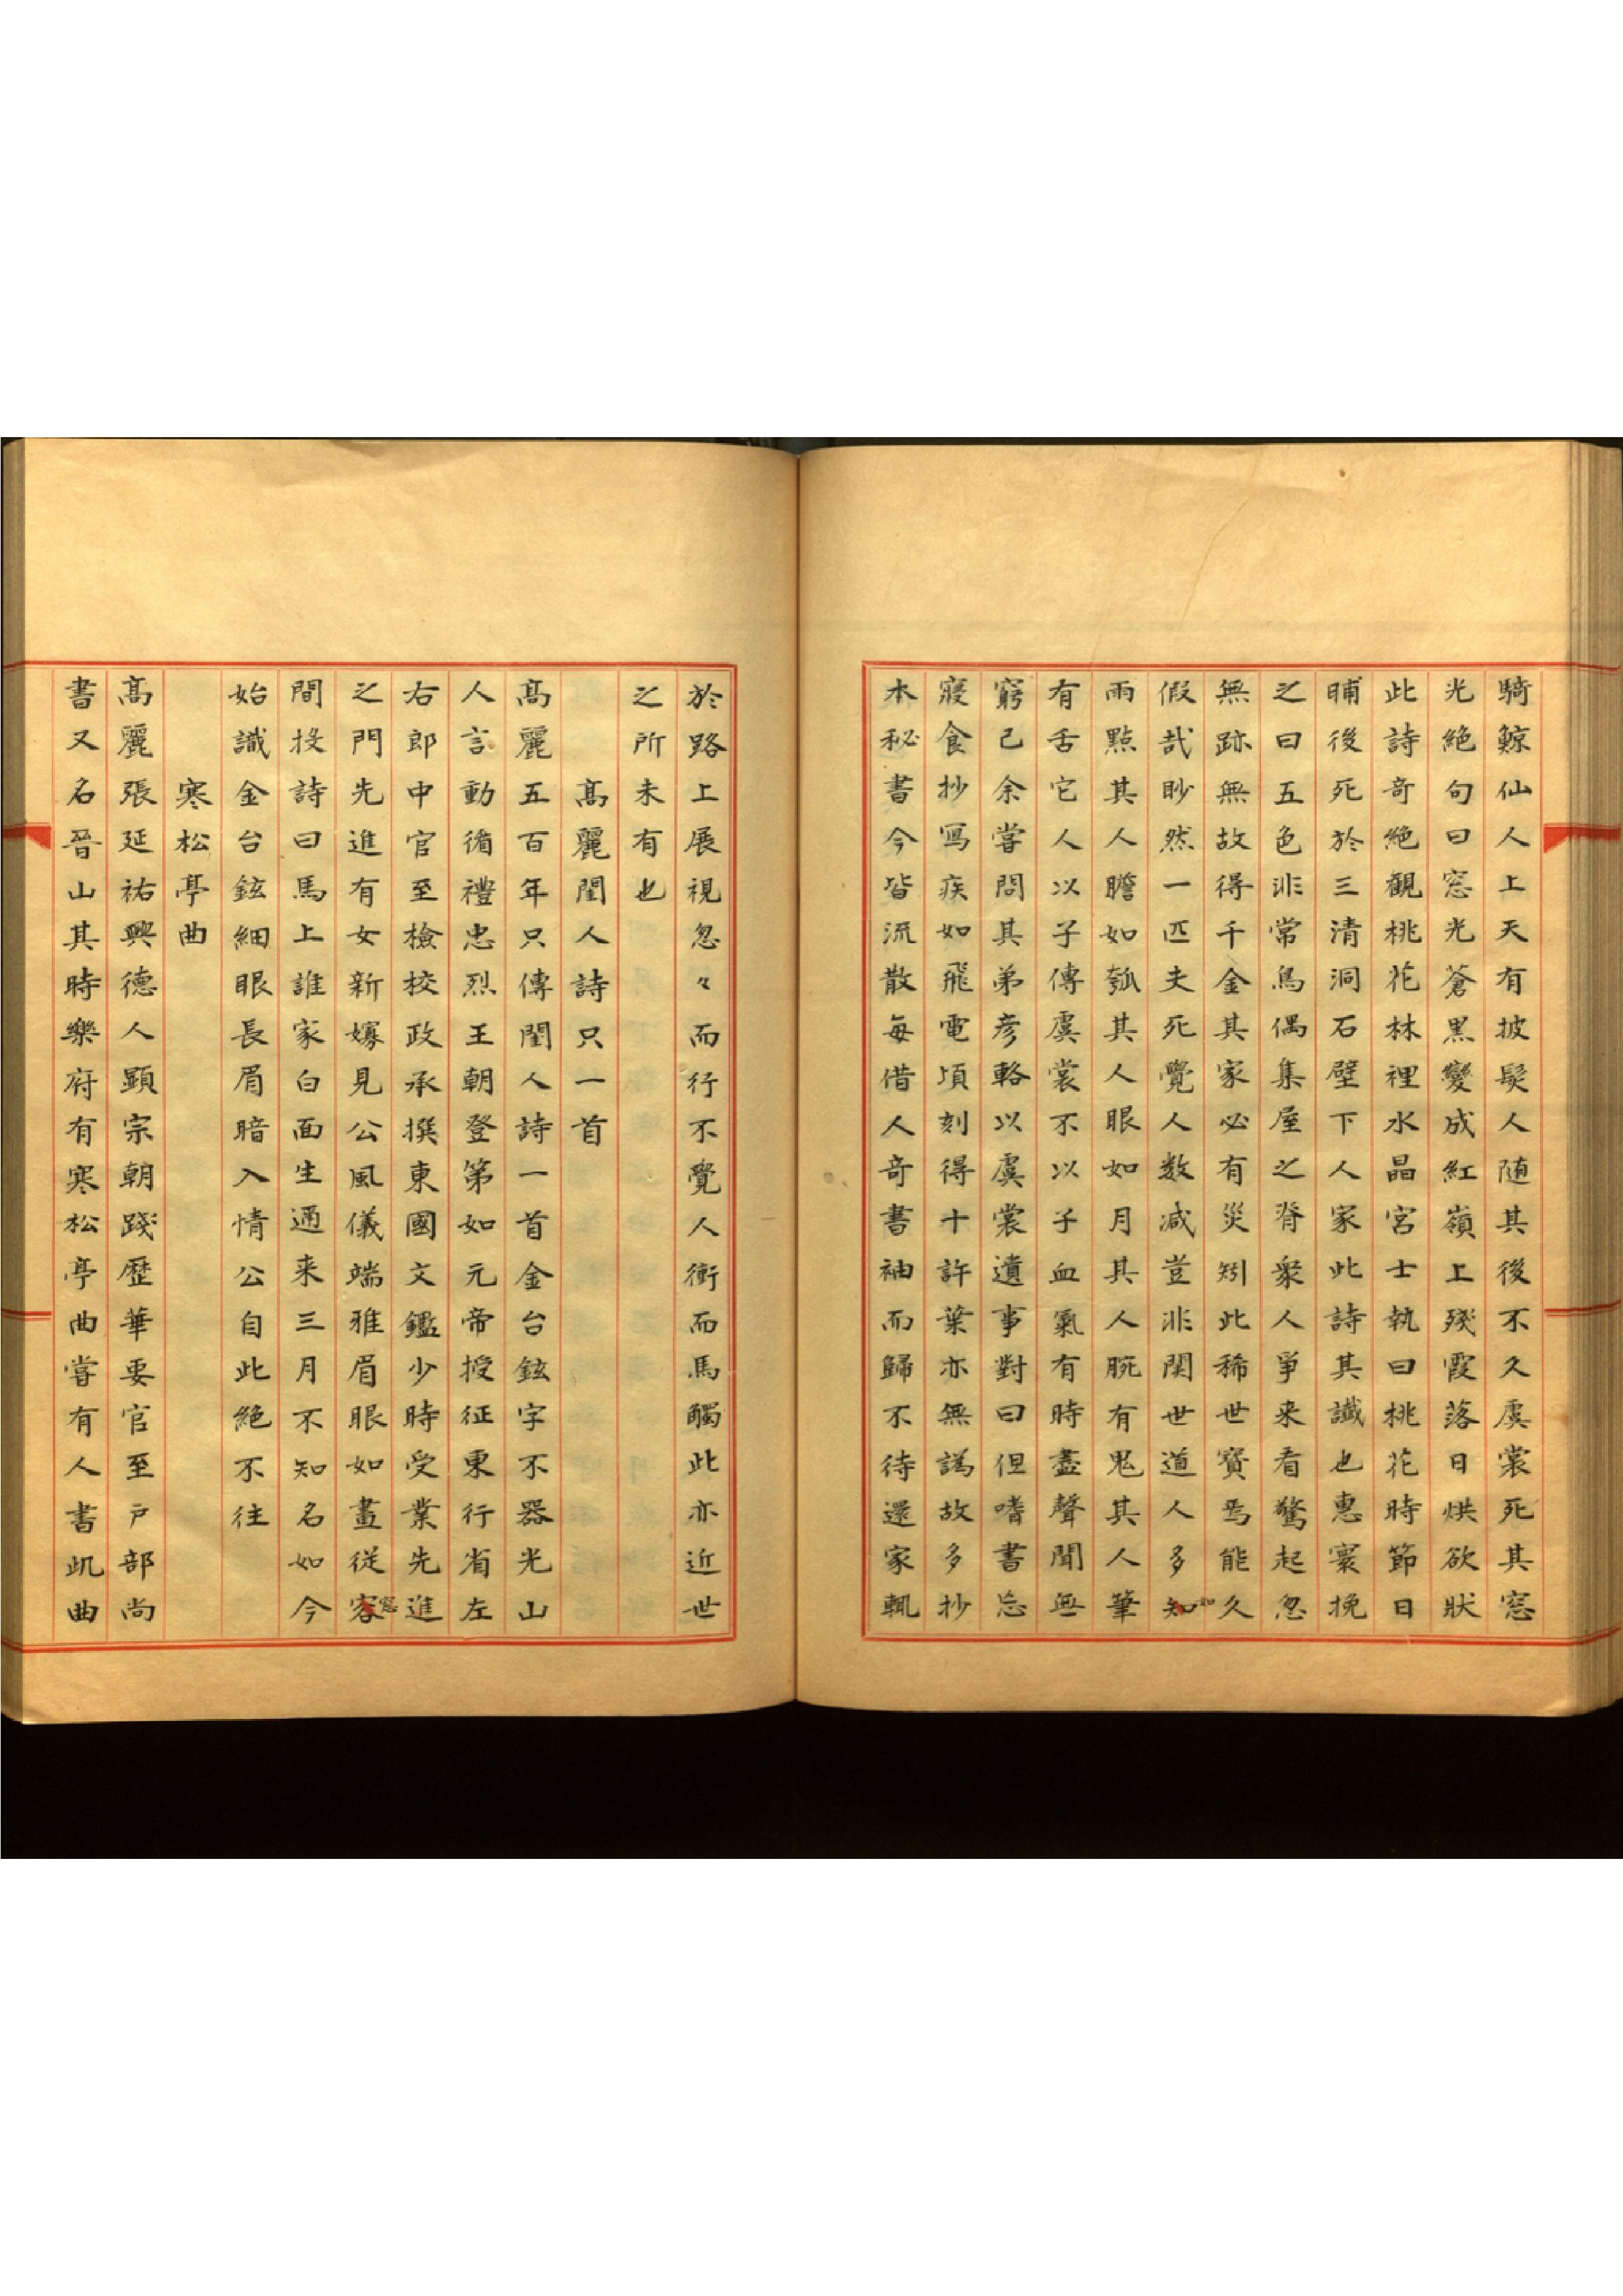 騎鯨仙人上天有披髮人随其後不久虞裳死其窓
光絶句曰窓光蒼黒變成紅嶺上殘霞落日烘欲狀
此詩奇絶觀桃花林裡水晶宮士執曰桃花時節日
晡後死於三清洞石壁下人家此詩其讖也惠寰挽
之曰五色非常鳥偶集屋之脊衆人爭来看驚起忽
無跡無故得千金其家必有災矧此稀世寶焉能久
假㢤眇然一匹夫死覺人数减豈非関世道人多知
和
雨點其人膽如瓠其人眼如月其人腕有鬼其人筆
有舌它人以子傳虞裳不以子血氣有時盡聲聞無
窮已余嘗問其弟彦輅以虞裳遺事對曰但嗜書忘
寢食抄寫疾如飛電頃刻得十許葉亦無譌故多抄
本秘書今皆流散毎借人奇書袖而歸不待還家輒
於路上展視忽々而行不覺人衝而馬觸此亦近世
之所未有也
高麗閨人詩只一首
高麗五百年只傳閨人詩一首金台鉉字不器光山
人言動循禮忠烈王朝登第如元帝授征東行省左
右郎中官至檢校政承撰東國文鑑少時受業先進
之門先進有女新嫁見公風儀端雅眉眼如畫從容
窓
間投詩曰馬上誰家白面生通来三月不知名如今
始識金台鉉細眼長眉暗入情公自此絶不往
寒松亭曲
高麗張延祐興德人顯宗朝踐歷華要官至戸部尚
書又名晉山其時樂府有寒松亭曲嘗有人書此曲